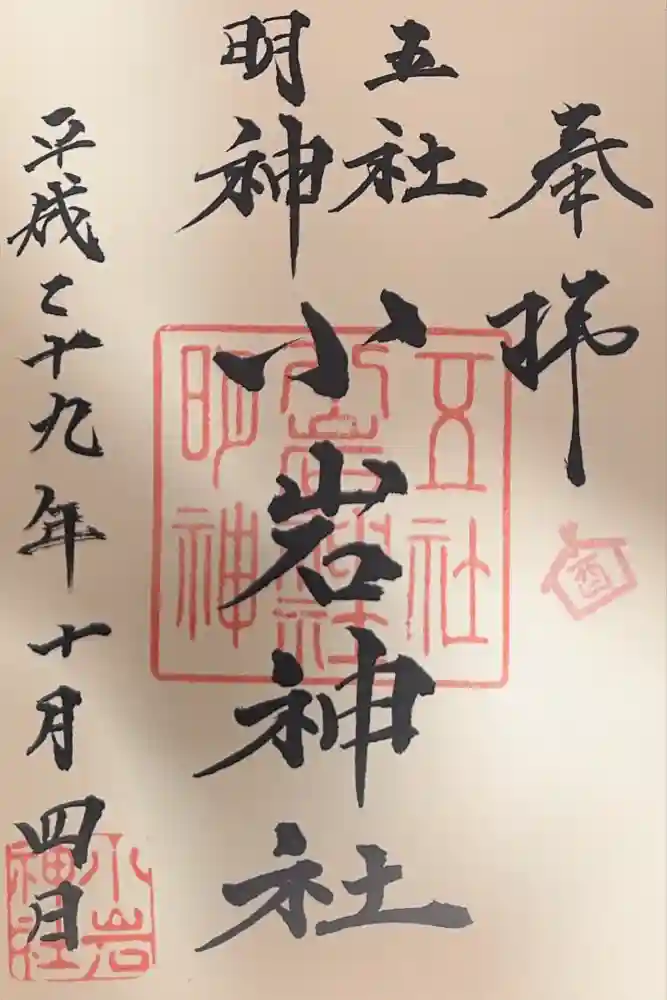 奉拝
五社
明神
小岩神社
平成二十九年十月四日
五社
小岩神社
明神
酉
小岩
神社